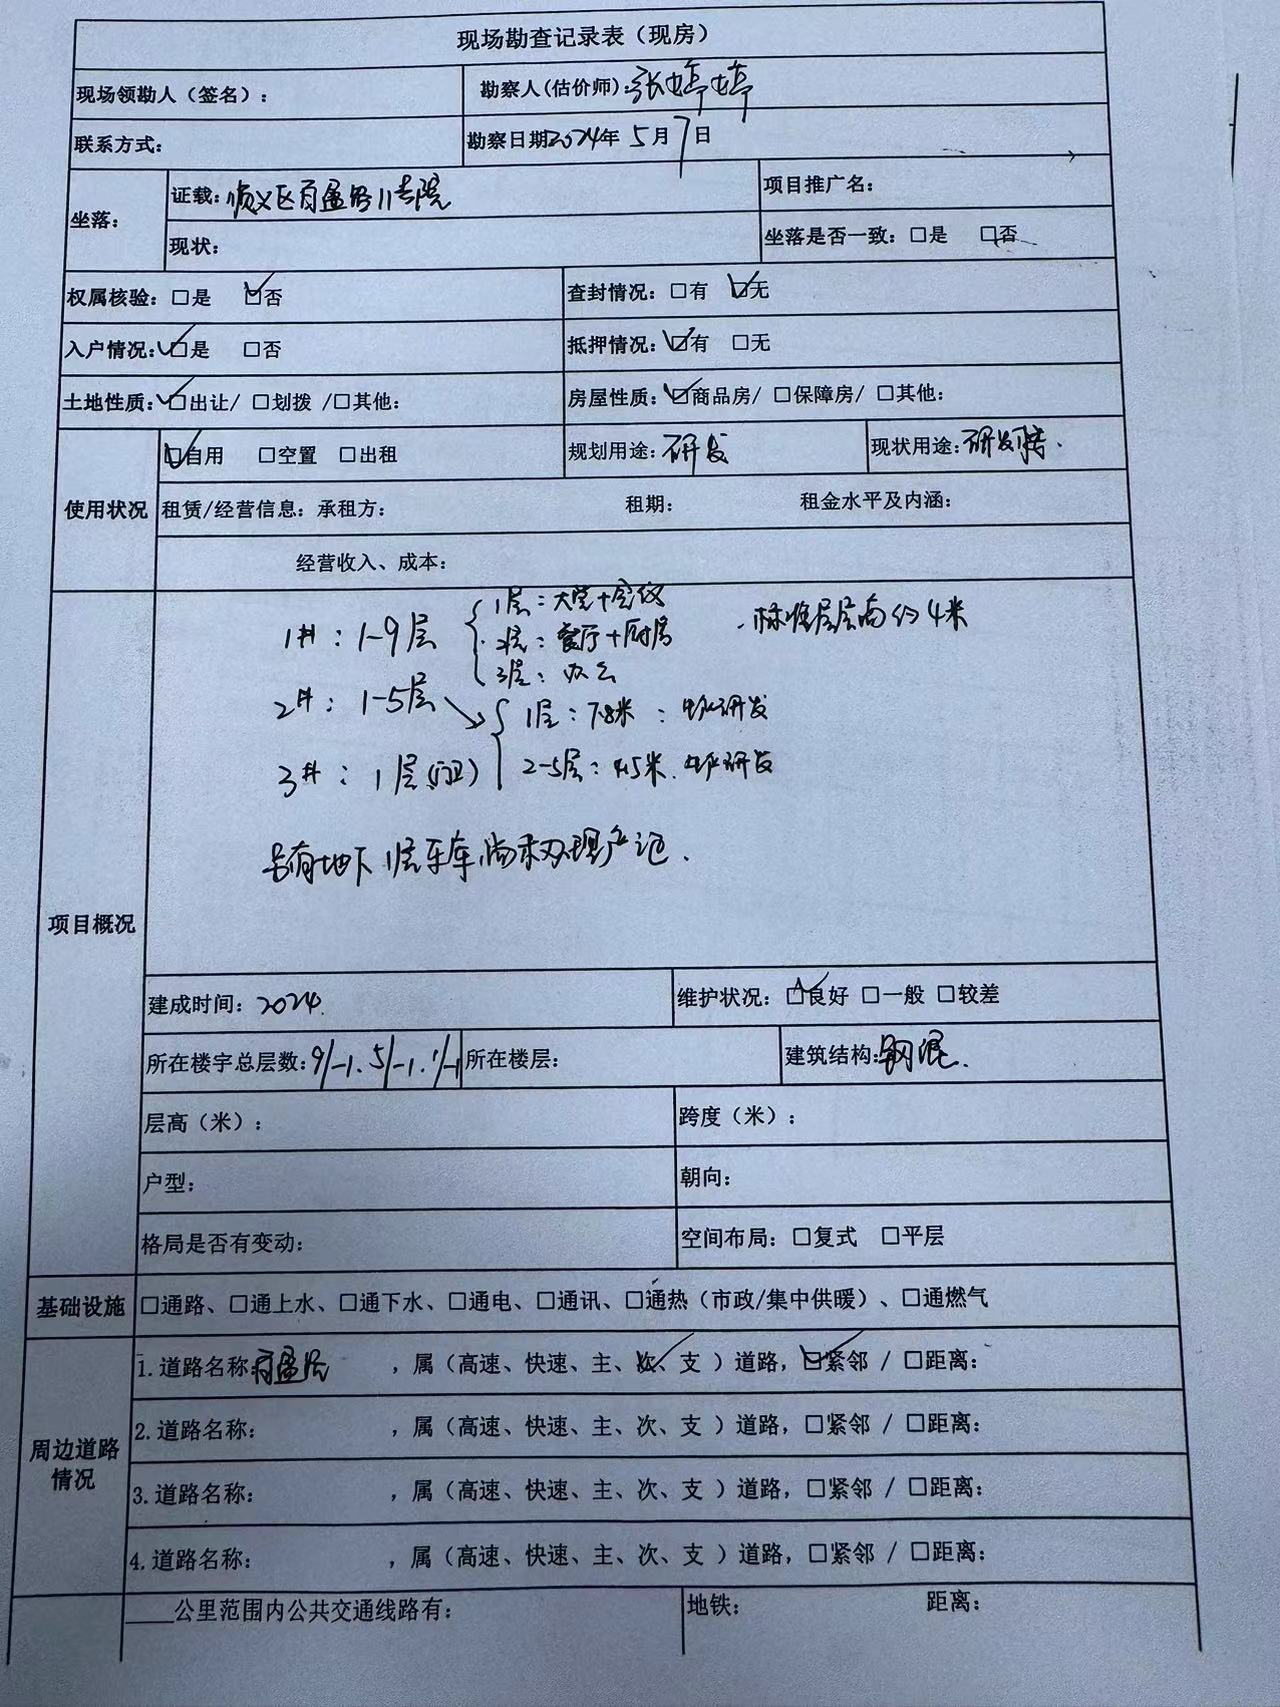 现场勘查记录表（现房）
现场领勘人（签名）：
勘察人(估价师)：张婷婷
联系方式：
勘察日期2024年 5月 7日
坐落：
证载：顺义区 11号院
项目推广名：
现状：
坐落是否一致：□是 □否
权属核验：□是 ☑否
查封情况：□有 ☑无
入户情况：☑是 □否
抵押情况：☑有 □无
土地性质：☑出让/ □划拨 /□其他：
房屋性质：☑商品房/ □保障房/ □其他：
使用状况
☑自用 □空置 □出租
规划用途：研发
现状用途：研发
租赁/经营信息：承租方： 租期： 租金水平及内涵：
经营收入、成本：
项目概况
1#：1-9层
1层：大堂+会议
2层：餐厅+厨房
3层：办公
标准层层高约4米
2#：1-5层
1层：7.8米： 研发
2-5层：4.5米. 研发
3#：1层(门卫)
另有地下1层车库，尚未办理产证.
建成时间：2024.
维护状况：☑良好 □一般 □较差
所在楼宇总层数：9/-1. 5/-1. 1/-1
所在楼层：
建筑结构：钢混.
层高（米）：
跨度（米）：
户型：
朝向：
格局是否有变动：
空间布局：□复式 □平层
基础设施
□通路、□通上水、□通下水、□通电、□通讯、□通热（市政/集中供暖）、□通燃气
周边道路情况
1.道路名称： ，属（高速、快速、主、次、支 ）道路，☑紧邻 / □距离：
2.道路名称： ，属（高速、快速、主、次、支 ）道路，□紧邻 / □距离：
3.道路名称： ，属（高速、快速、主、次、支 ）道路，□紧邻 / □距离：
4.道路名称： ，属（高速、快速、主、次、支 ）道路，□紧邻 / □距离：
____公里范围内公共交通线路有：
地铁： 距离：